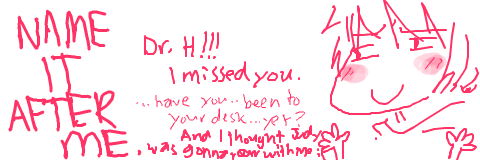 NAME
IT
AFTER
ME
Dr. H!!!
I missed you.
...have you..been to
your desk...yet?
And I thought Judy
was gonna room with me